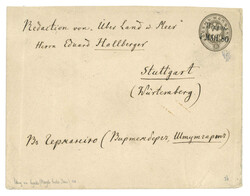 Redaction von „Über Land u Meer"
Herrn Eduard Hallberger
Stuttgart
(Würtemberg)
Въ Германію (Виртембергъ, Штутгартъ)